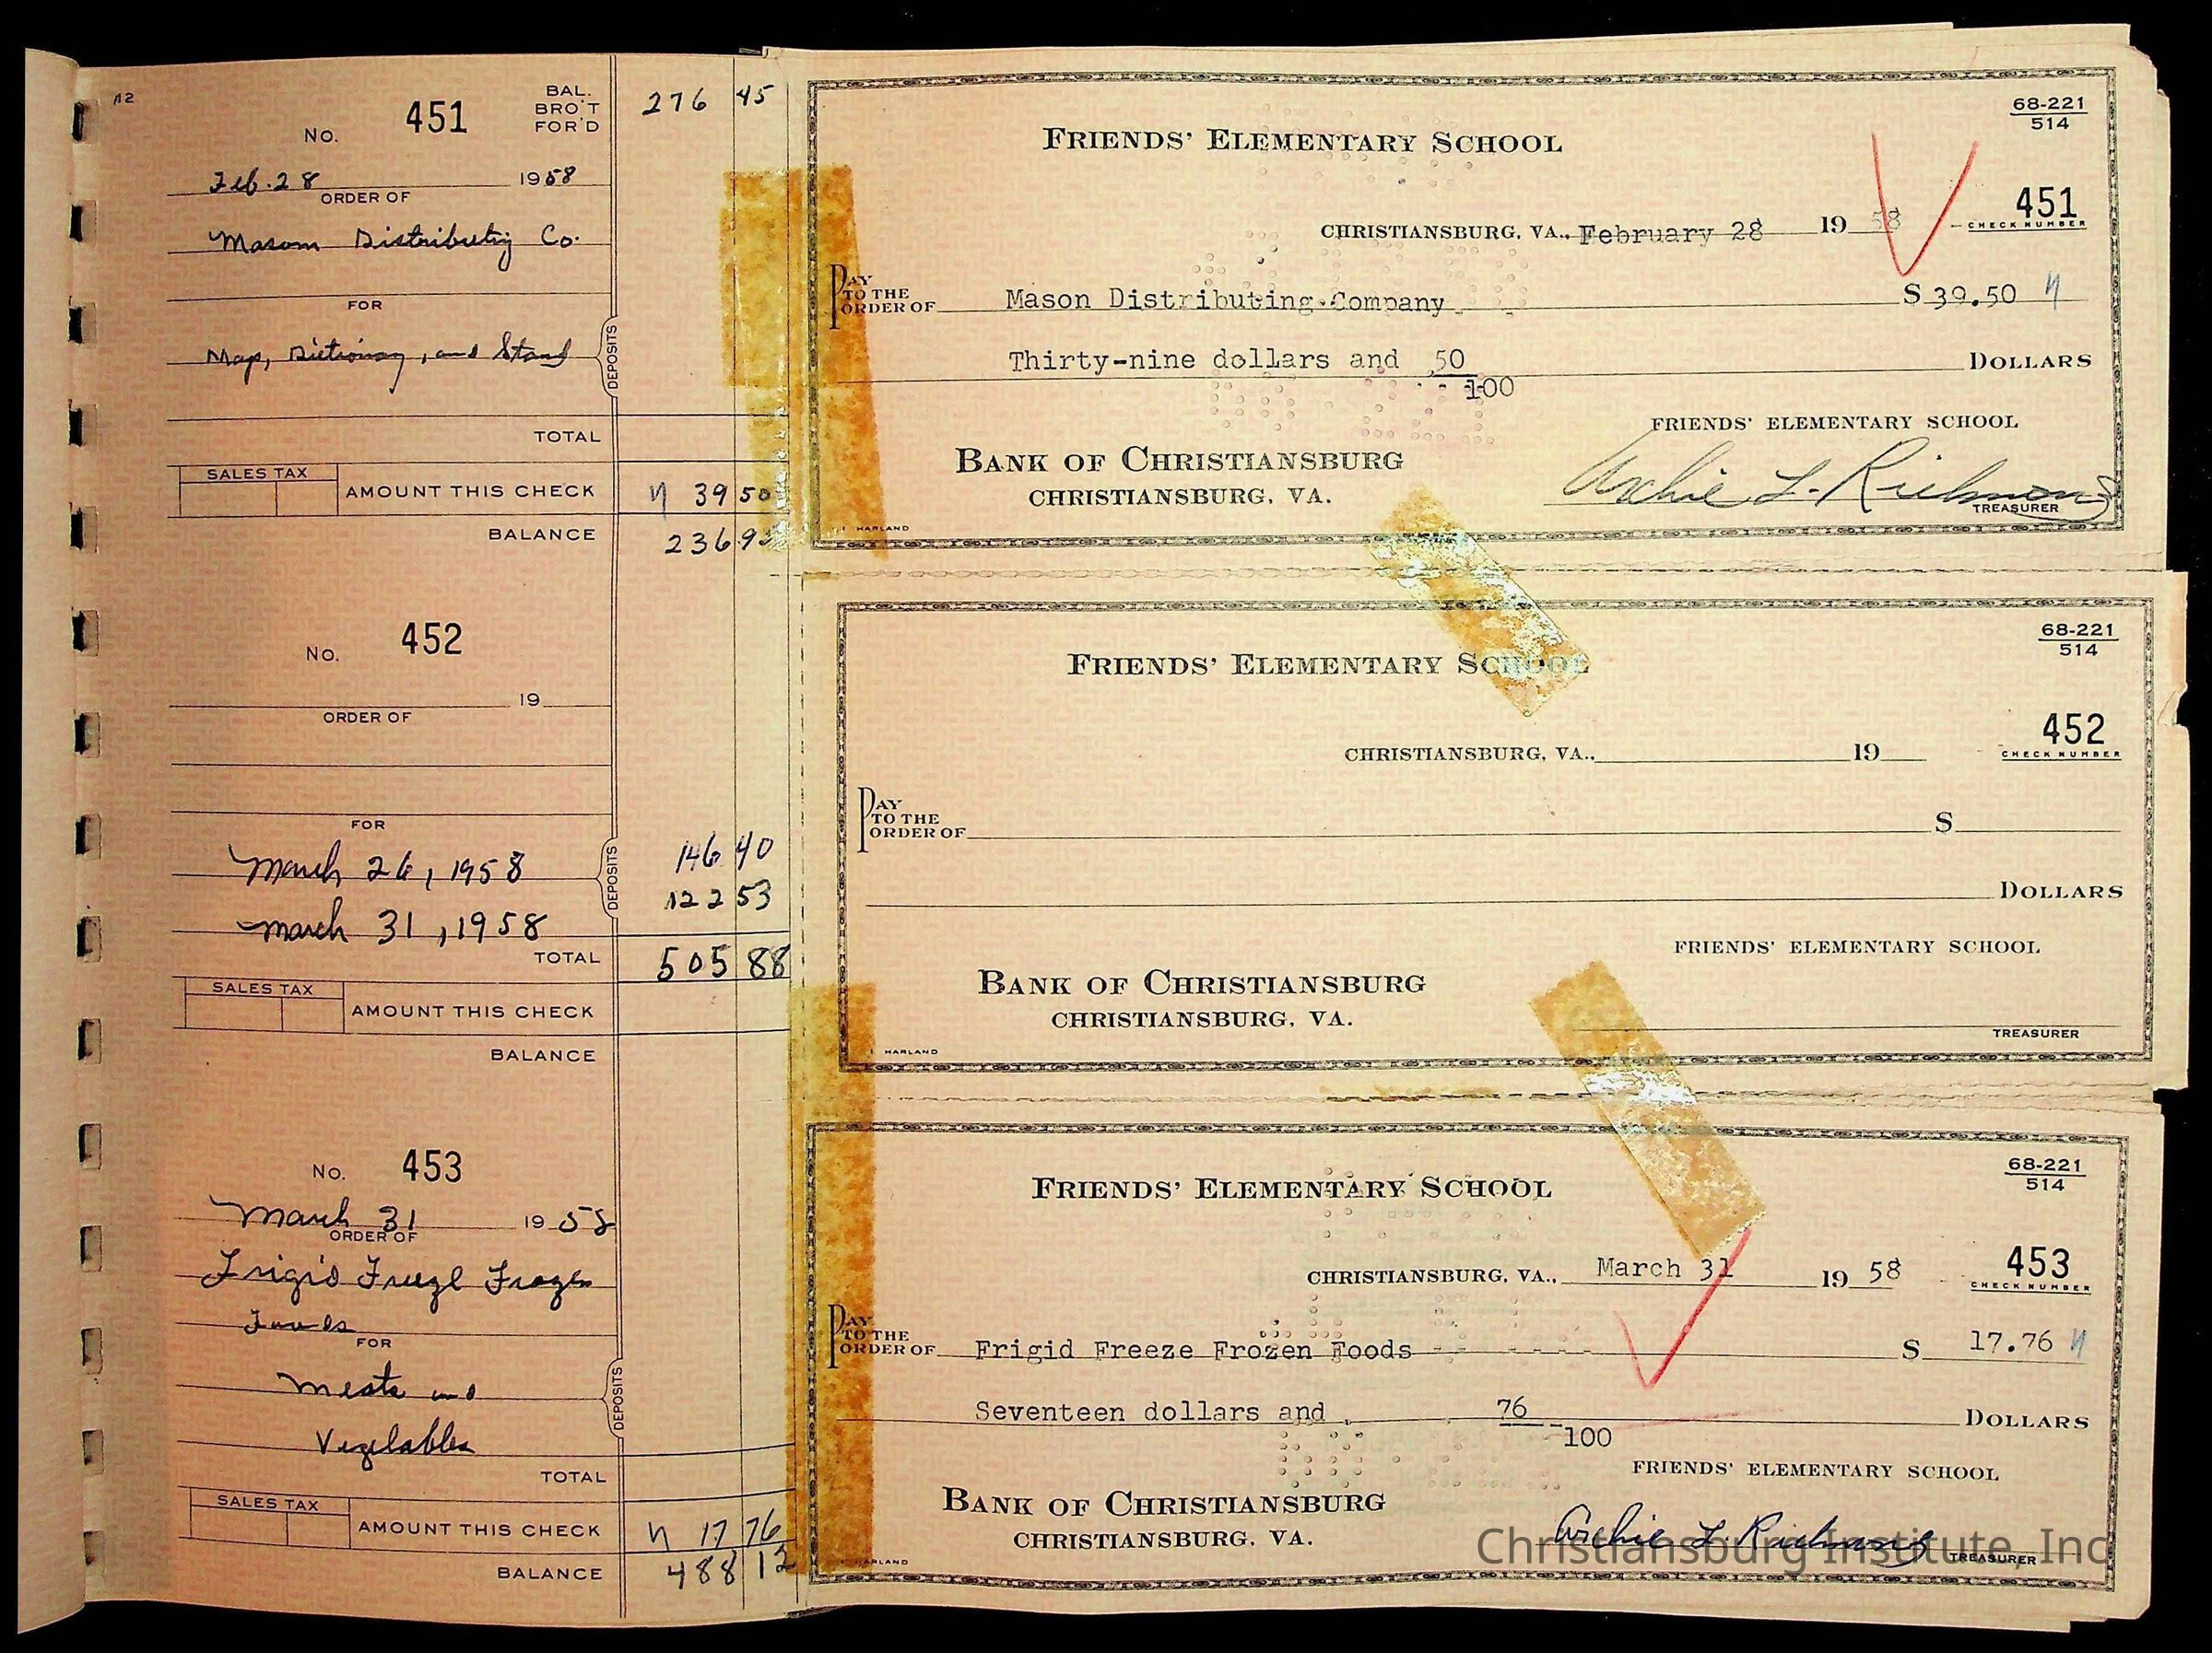 No. 451 BAL. BRO'T FOR'D 276 45
Feb. 28 1958
ORDER OF
Mason Distributing Co.
FOR
Map, Dictionary, and Stand
DEPOSITS
TOTAL
SALES TAX
AMOUNT THIS CHECK 39 50
BALANCE 236 95
No. 452
19
ORDER OF
FOR
March 26, 1958 146 40
DEPOSITS
March 31, 1958 122 53
TOTAL 505 88
SALES TAX
AMOUNT THIS CHECK
BALANCE
No. 453
March 31 1958
ORDER OF
Frigid Freeze Frozen
Foods
FOR
Meats and
DEPOSITS
Vegetables
TOTAL
SALES TAX
AMOUNT THIS CHECK 17 76
BALANCE 488 12
68-221
514
FRIENDS' ELEMENTARY SCHOOL
451
CHECK NUMBER
CHRISTIANSBURG, VA., February 28 19 58
PAY TO THE ORDER OF Mason Distributing Company $ 39.50
Thirty-nine dollars and 50/100 DOLLARS
FRIENDS' ELEMENTARY SCHOOL
BANK OF CHRISTIANSBURG
CHRISTIANSBURG, VA.
Archie L. Richmond
TREASURER
HARLAND
68-221
514
FRIENDS' ELEMENTARY SCHOOL
452
CHECK NUMBER
CHRISTIANSBURG, VA., 19
PAY TO THE ORDER OF $
DOLLARS
FRIENDS' ELEMENTARY SCHOOL
BANK OF CHRISTIANSBURG
CHRISTIANSBURG, VA.
TREASURER
HARLAND
68-221
514
FRIENDS' ELEMENTARY SCHOOL
453
CHECK NUMBER
CHRISTIANSBURG, VA., March 31 19 58
PAY TO THE ORDER OF Frigid Freeze Frozen Foods $ 17.76
Seventeen dollars and 76/100 DOLLARS
FRIENDS' ELEMENTARY SCHOOL
BANK OF CHRISTIANSBURG
CHRISTIANSBURG, VA.
Archie L. Richmond
TREASURER
HARLAND
Christiansburg Institute, Inc